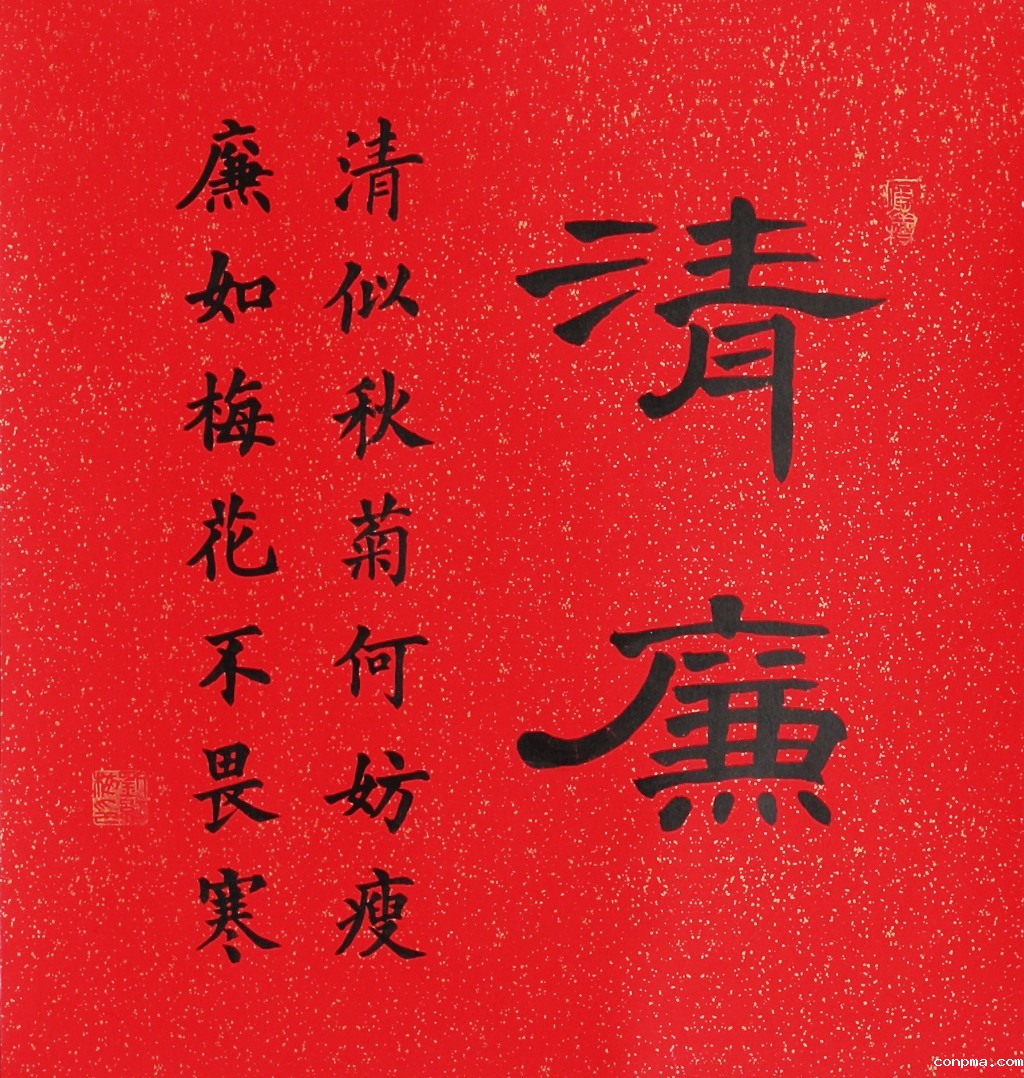 清廉
清似秋菊何妨瘦
廉如梅花不畏寒
conpma.com